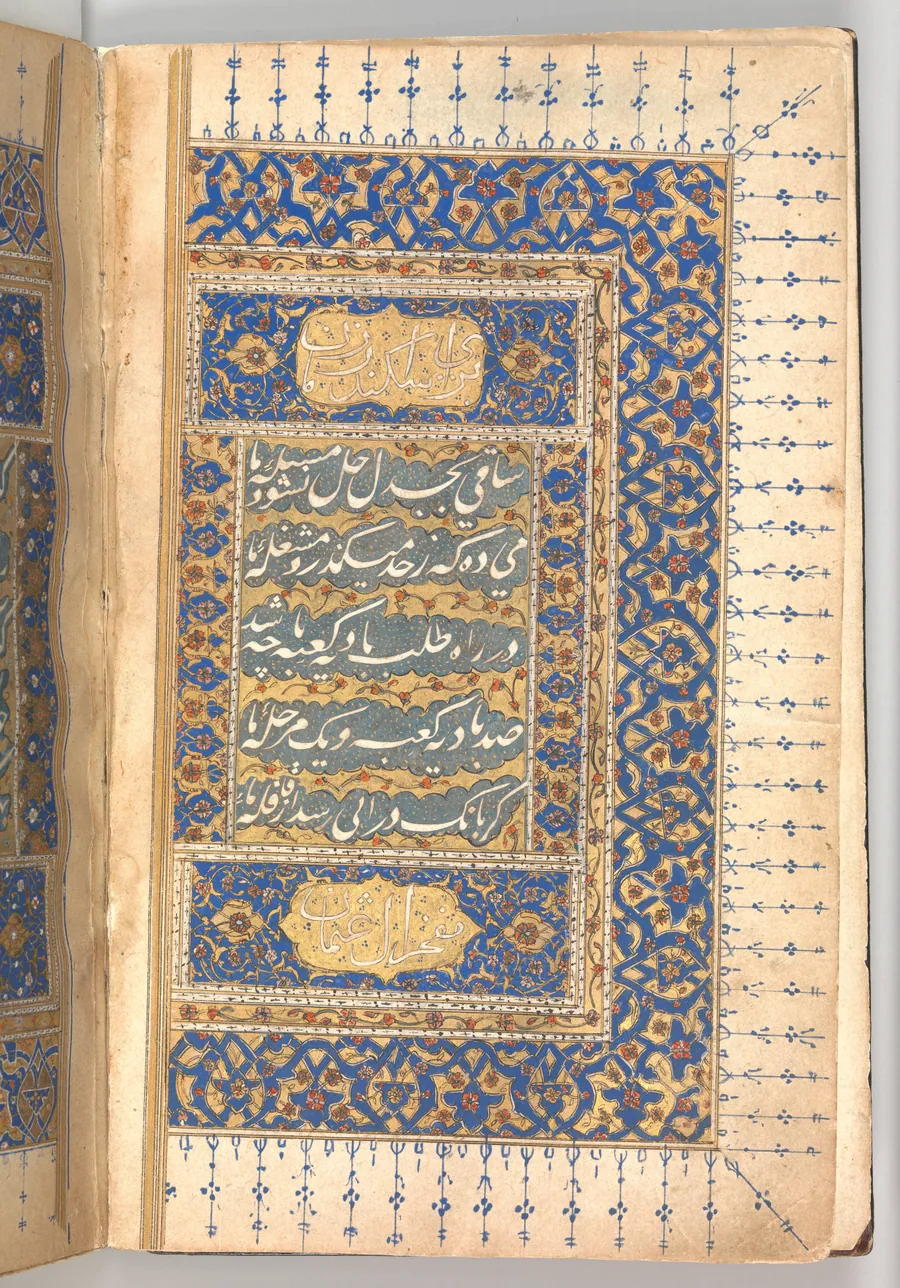 سکندر زمان
ساقی بجدل حل نشود مسئلهٔ ما
می ده که ز حد میگذرد مشغلهٔ ما
در راه طلب بادیه کعبه چه باشد
صد بادیه کعبه و یک مرحلهٔ ما
گر بانک درائی رسد از قافلهٔ ما
مفخر آل عثمان